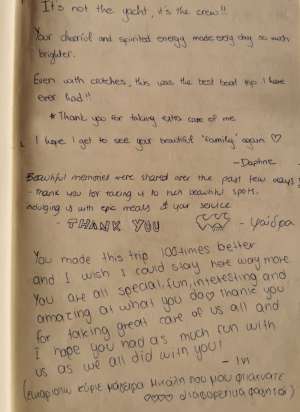 It's not the yacht, it's the crew!!
Your cheerful and spirited energy made every day so much
brighter.
Even with catches, this was the best boat trip I have
ever had!!
*Thank you for taking extra care of me
I hope I get to see your beautiful "family" again ♡
- Daphne
Beautiful memories were shared over the past few days!
- Thank you for taking us to such beautiful spots,
indulging us with epic meals & your service
- THANK YOU - Φαίδρα
You made this trip 100times better
and I wish I could stay here way more.
You are all special, fun, interesting and
amazing at what you do. Thank you
for taking great care of us all and
I hope you had as much fun with
us as we all did with you!
- Ινι
(ευχαριστώ κύριε μάγειρα Μιχάλη που μου φτιάχνατε
διαφορετικό φαγητό)